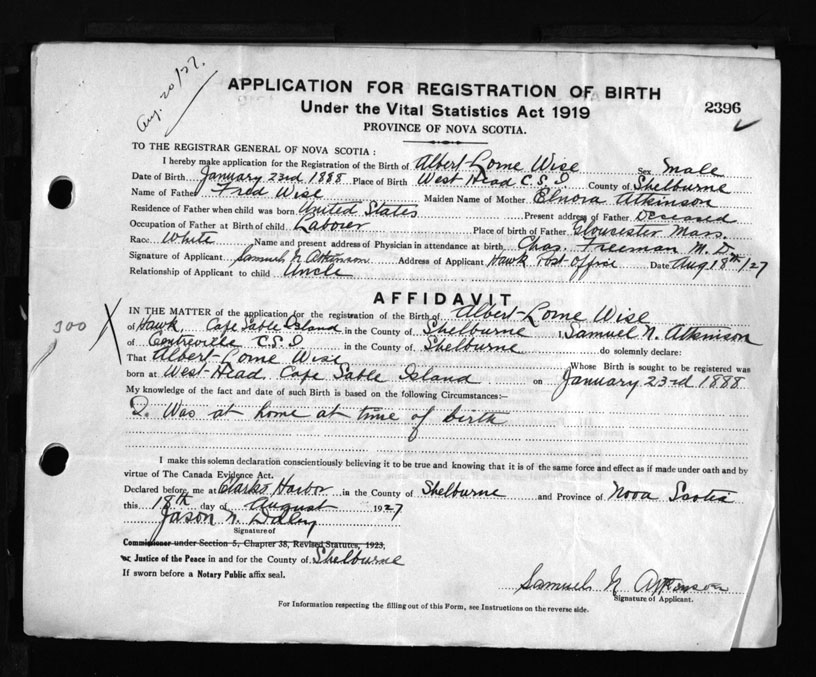 Aug. 20/27.
APPLICATION FOR REGISTRATION OF BIRTH
Under the Vital Statistics Act 1919
2396
PROVINCE OF NOVA SCOTIA.
TO THE REGISTRAR GENERAL OF NOVA SCOTIA :
I hereby make application for the Registration of the Birth of Albert Lorne Wise Sex male
Date of Birth January 23rd 1888 Place of Birth West Head C.S.I. County of Shelburne
Name of Father Fred Wise Maiden Name of Mother Elnora Atkinson
Residence of Father when child was born United States Present address of Father Deseased
Occupation of Father at Birth of child Laborer Place of birth of Father Gloucester Mass.
Race White Name and present address of Physician in attendance at birth Chas. Freeman M.D.
Signature of Applicant Samuel N Atkinson Address of Applicant Hawk Post Office Date Aug 18th/27
Relationship of Applicant to child Uncle
AFFIDAVIT
IN THE MATTER of the application for the registration of the Birth of Albert Lorne Wise
300
of Hawk, Cape Sable Island in the County of Shelburne I, Samuel N. Atkinson
of Centreville C.S.I. in the County of Shelburne do solemnly declare:
That Albert Lorne Wise Whose Birth is sought to be registered was
born at West Head, Cape Sable Island on January 23rd 1888
My knowledge of the fact and date of such Birth is based on the following Circumstances:—
I. Was at home at time of birth
I make this solemn declaration conscientiously believing it to be true and knowing that it is of the same force and effect as if made under oath and by
virtue of The Canada Evidence Act.
Declared before me at Clarks Harbor in the County of Shelburne and Province of Nova Scotia
this 18th day of August 1927
Jason N.
Signature of
Commissioner under Section 5, Chapter 38, Revised Statutes, 1923,
or Justice of the Peace in and for the County of Shelburne
If sworn before a Notary Public affix seal.
Samuel N Atkinson
Signature of Applicant.
For Information respecting the filling out of this Form, see Instructions on the reverse side.